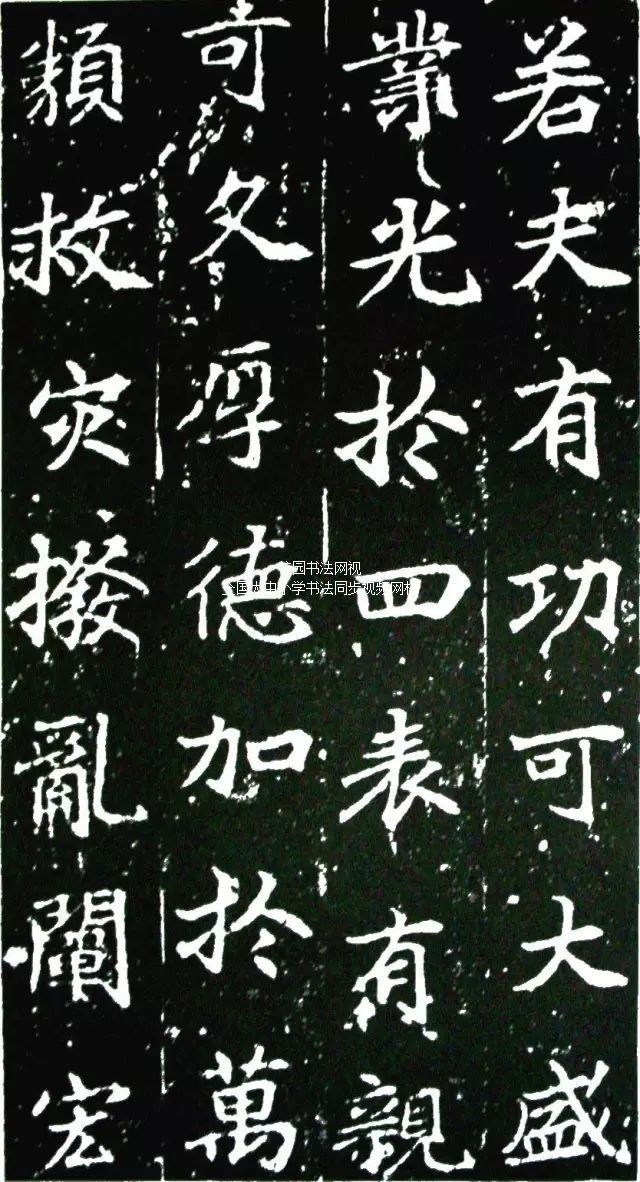 若夫有功可大盛
業光於四表有親
可久厚德加於萬
類救灾撥亂闡宏
书法网视
全国大中小学书法同步视频网校